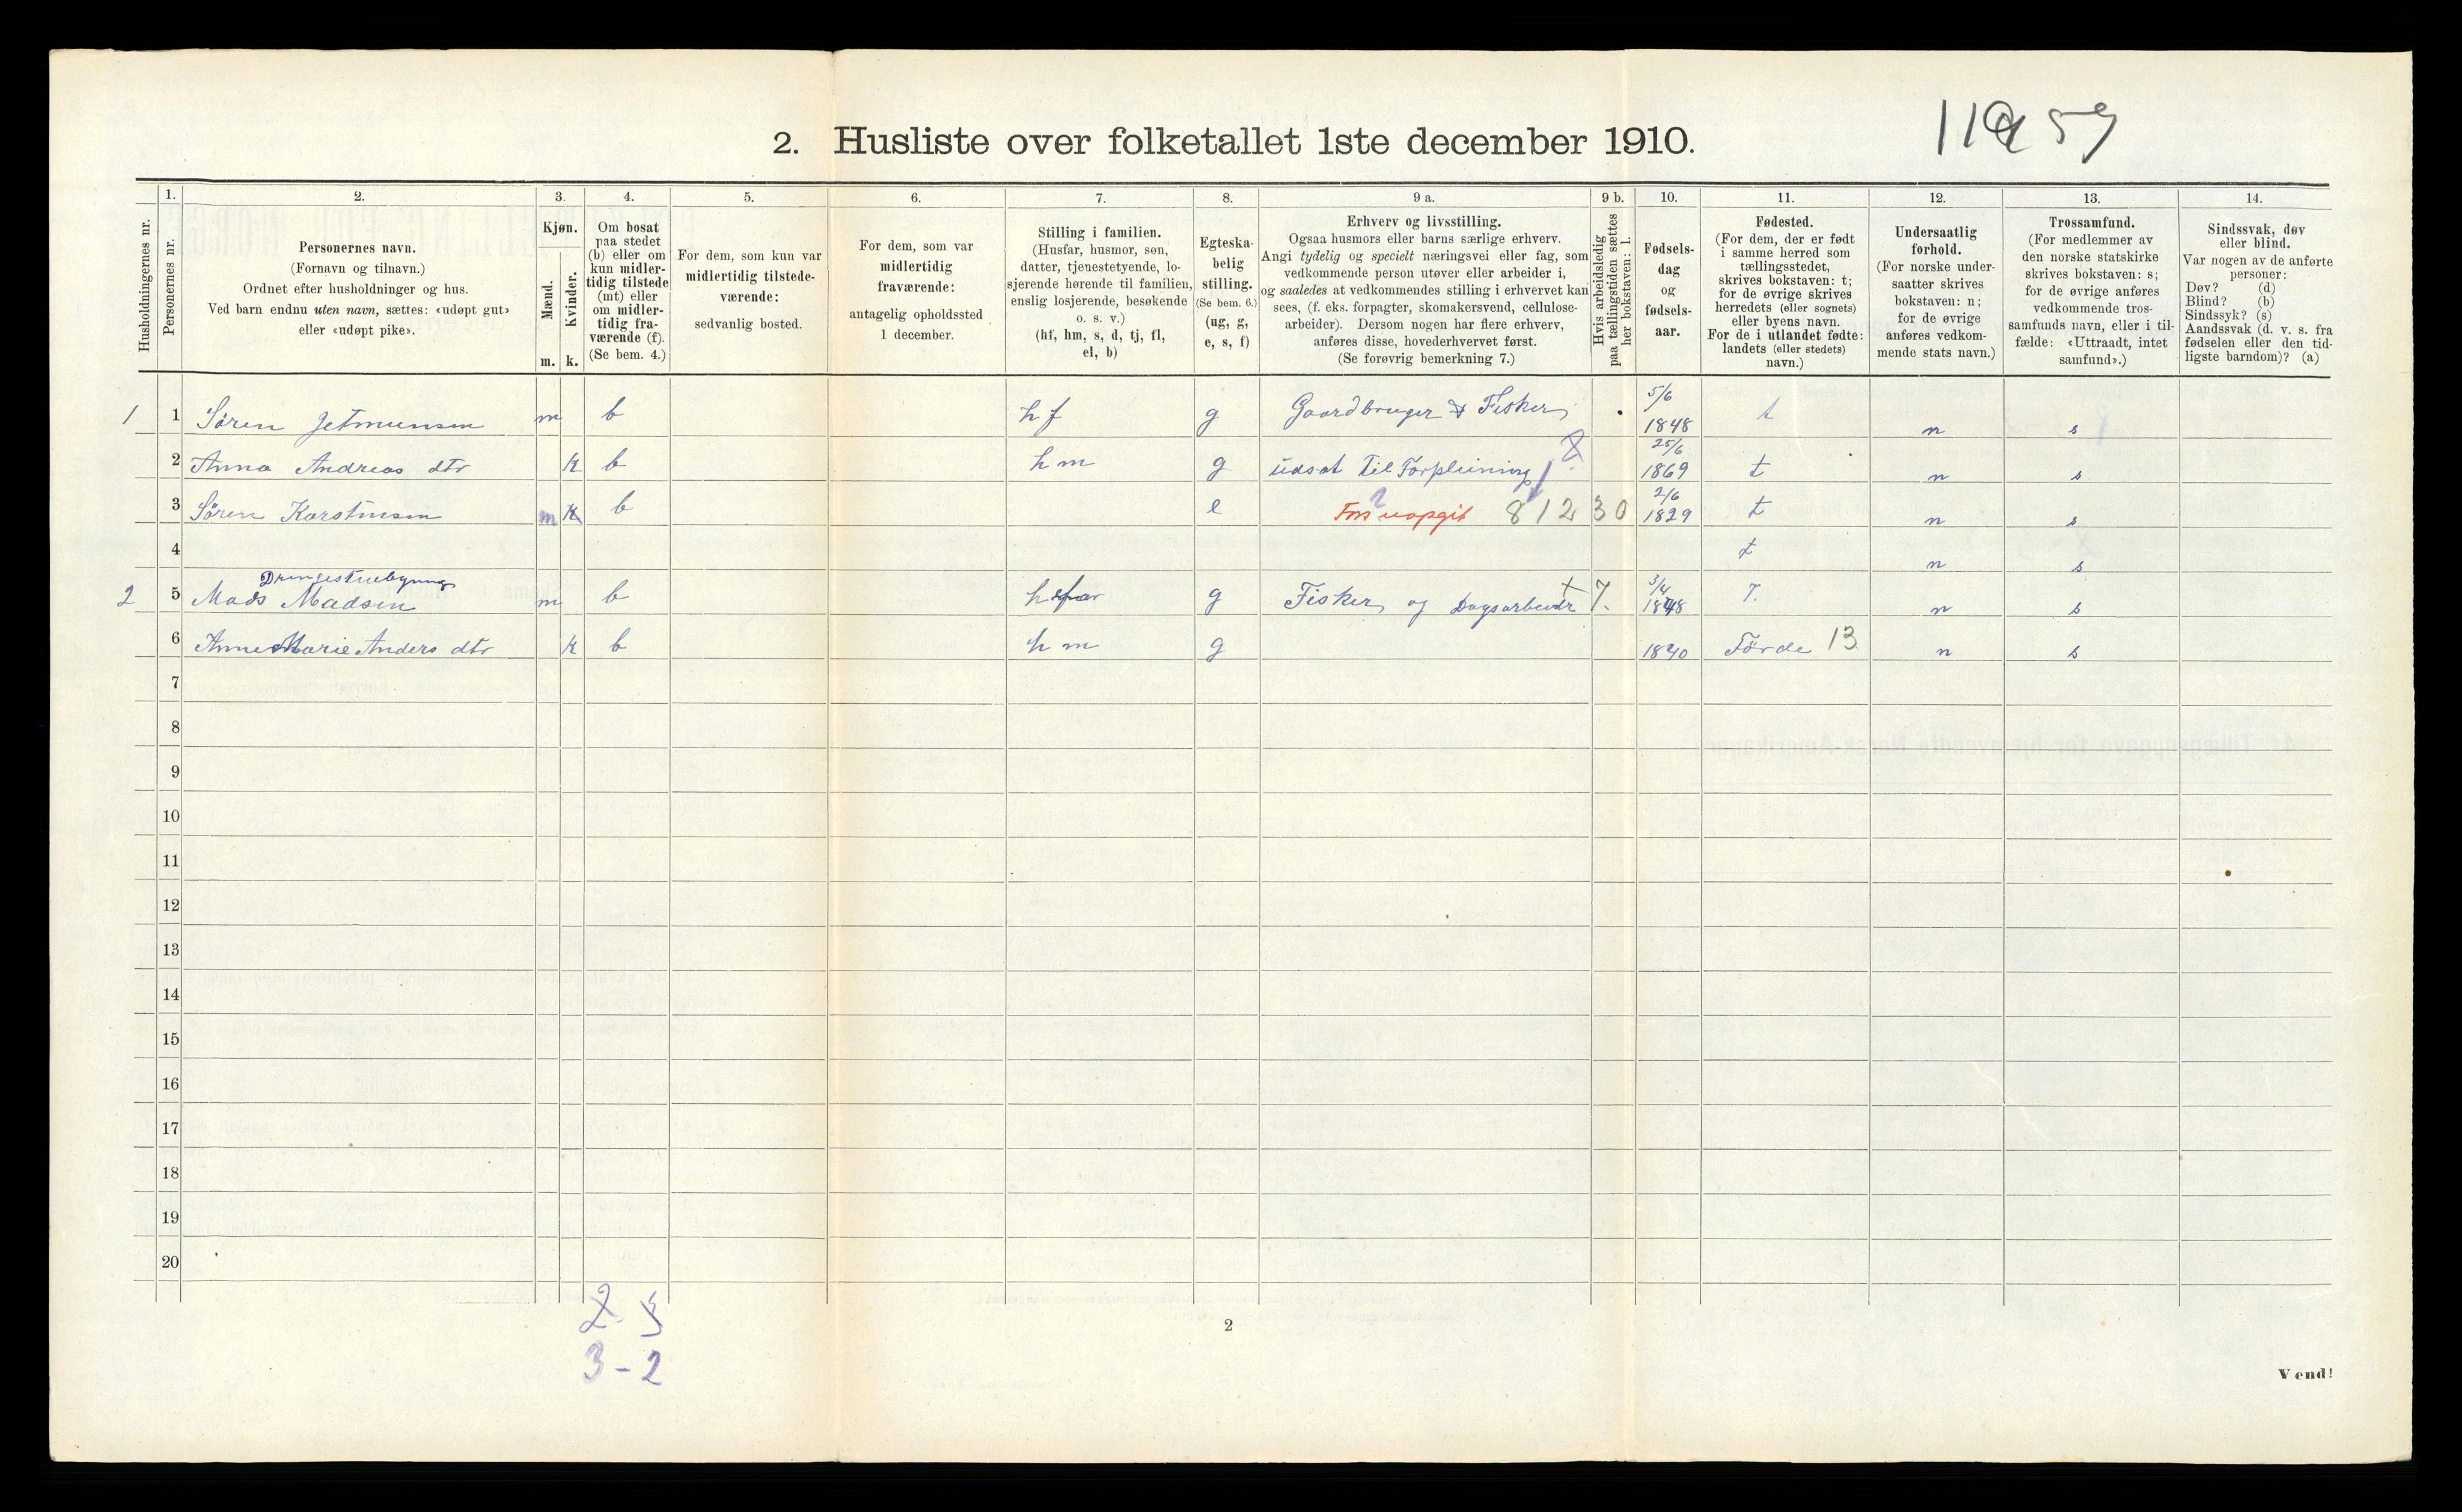 2. Husliste over folketallet 1ste december 1910.
Husholdningernes nr.
1.
Personernes nr.
2.
Personernes navn.
(Fornavn og tilnavn.)
Ordnet efter husholdninger og hus.
Ved barn endnu uten navn, sættes: «udøpt gut»
eller «udøpt pike».
3.
Kjøn.
Mænd.
Kvinder.
m. k.
4.
Om bosat
paa stedet
(b) eller om
kun midler-
tidig tilstede
(mt) eller
om midler-
tidig fra-
værende (f).
(Se bem. 4.)
5.
For dem, som kun var
midlertidig tilstede-
værende:
sedvanlig bosted.
6.
For dem, som var
midlertidig
fraværende:
antagelig opholdssted
1 december.
7.
Stilling i familien.
(Husfar, husmor, søn,
datter, tjenestetyende, lo-
sjerende hørende til familien,
enslig losjerende, besøkende
o. s. v.)
(hf, hm, s, d, tj, fl,
el, b)
8.
Egteska-
belig
stilling.
(Se bem. 6.)
(ug, g,
e, s, f)
9 a.
Erhverv og livsstilling.
Ogsaa husmors eller barns særlige erhverv.
Angi tydelig og specielt næringsvei eller fag, som
vedkommende person utøver eller arbeider i,
og saaledes at vedkommendes stilling i erhvervet kan
sees, (f. eks. forpagter, skomakersvend, cellulose-
arbeider). Dersom nogen har flere erhverv,
anføres disse, hovederhvervet først.
(Se forøvrig bemerkning 7.)
9 b.
Hvis arbeidsledig
paa tællingstiden sættes
her bokstaven: l.
10.
Fødsels-
dag
og
fødsels-
aar.
11.
Fødested.
(For dem, der er født
i samme herred som
tællingsstedet,
skrives bokstaven: t;
for de øvrige skrives
herredets (eller sognets)
eller byens navn.
For de i utlandet fødte:
landets (eller stedets)
navn.)
12.
Undersaatlig
forhold.
(For norske under-
saatter skrives
bokstaven: n;
for de øvrige
anføres vedkom-
mende stats navn.)
13.
Trossamfund.
(For medlemmer av
den norske statskirke
skrives bokstaven: s;
for de øvrige anføres
vedkommende tros-
samfunds navn, eller i til-
fælde: «Uttraadt, intet
samfund».)
14.
Sindssvak, døv
eller blind.
Var nogen av de anførte
personer:
Døv? (d)
Blind? (b)
Sindssyk? (s)
Aandssvak (d. v. s. fra
fødselen eller den tid-
ligste barndom)? (a)
1 1 Sören Jetmunsen m b hf g Gaardbruger & Fisker 5/6 1848 t n s
2 Anna Andreas dtr k b hm g udsat til Forpleining 25/6 1869 t n s
3 Sören Karstensen m k b e uopgit 8 12 30 2/6 1829 t n s
4 t n s
2 5 Mads Madsen m b g Fisker og Dagsarbeider 7. 3/4 1848 T. n s
6 Anne Marie Anders dtr k b hm g 1840 Förde 13 n s
7
8
9
10
11
12
13
14
15
16
17
18
19
20
3 - 2
2
Vend!